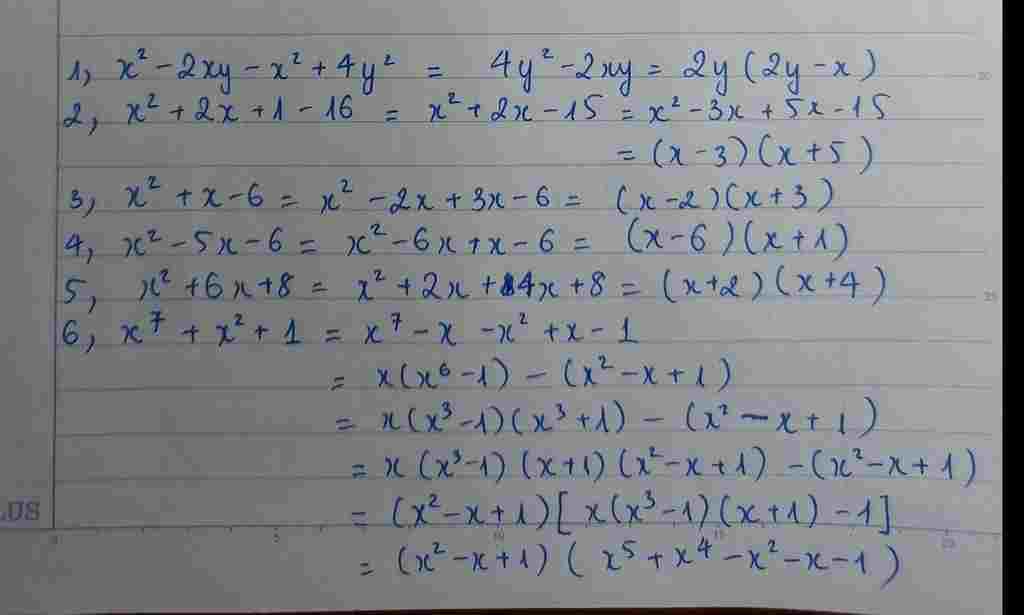 1, x² - 2xy - x² + 4y² = 4y² - 2xy = 2y (2y - x)
2, x² + 2x + 1 - 16 = x² + 2x - 15 = x² - 3x + 5x - 15
= (x - 3) (x + 5)
3, x² + x - 6 = x² - 2x + 3x - 6 = (x - 2) (x + 3)
4, x² - 5x - 6 = x² - 6x + x - 6 = (x - 6) (x + 1)
5, x² + 6x + 8 = x² + 2x + 4x + 8 = (x + 2) (x + 4)
6, x⁷ + x² + 1 = x⁷ - x - x² + x - 1
= x (x⁶ - 1) - (x² - x + 1)
= x (x³ - 1) (x³ + 1) - (x² - x + 1)
= x (x³ - 1) (x + 1) (x² - x + 1) - (x² - x + 1)
LUS = (x² - x + 1) [ x (x³ - 1) (x + 1) - 1 ]
= (x² - x + 1) ( x⁵ + x⁴ - x² - x - 1 )